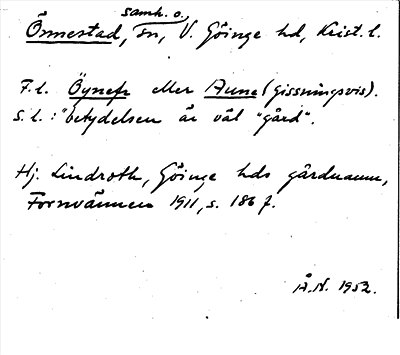 samh. o.
Önnestad, sn, V. Göinge hd, Krist. l.
F. l. Öynefr eller Aune (gissningsvis).
S. l.: "betydelsen är väl "gård".
Hj. Lindroth, Göinge hds gårdnamn,
Fornvännen 1911, s. 186 f.
Å.N. 1952.